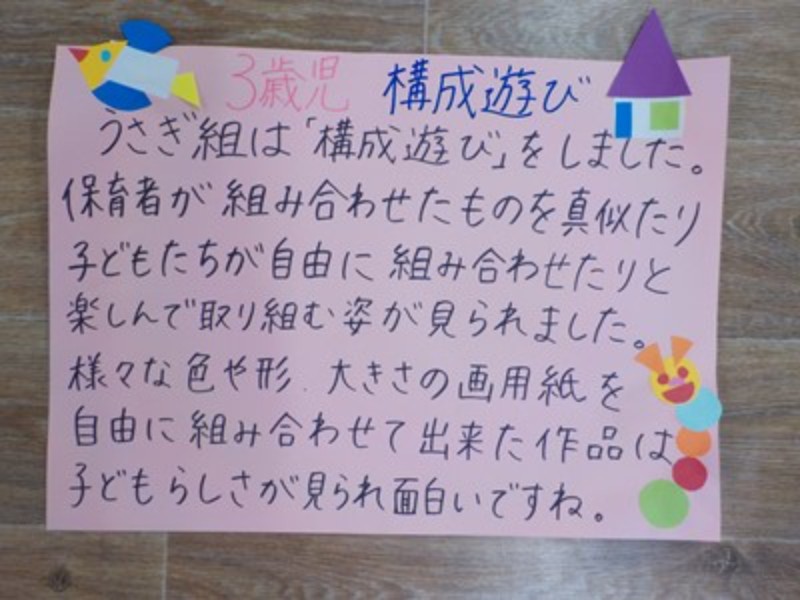 3歳児 構成遊び
うさぎ組は「構成遊び」をしました。
保育者が組み合わせたものを真似たり
子どもたちが自由に組み合わせたりと
楽しんで取り組む姿が見られました。
様々な色や形、大きさの画用紙を
自由に組み合わせて出来た作品は
子どもらしさが見られ面白いですね。